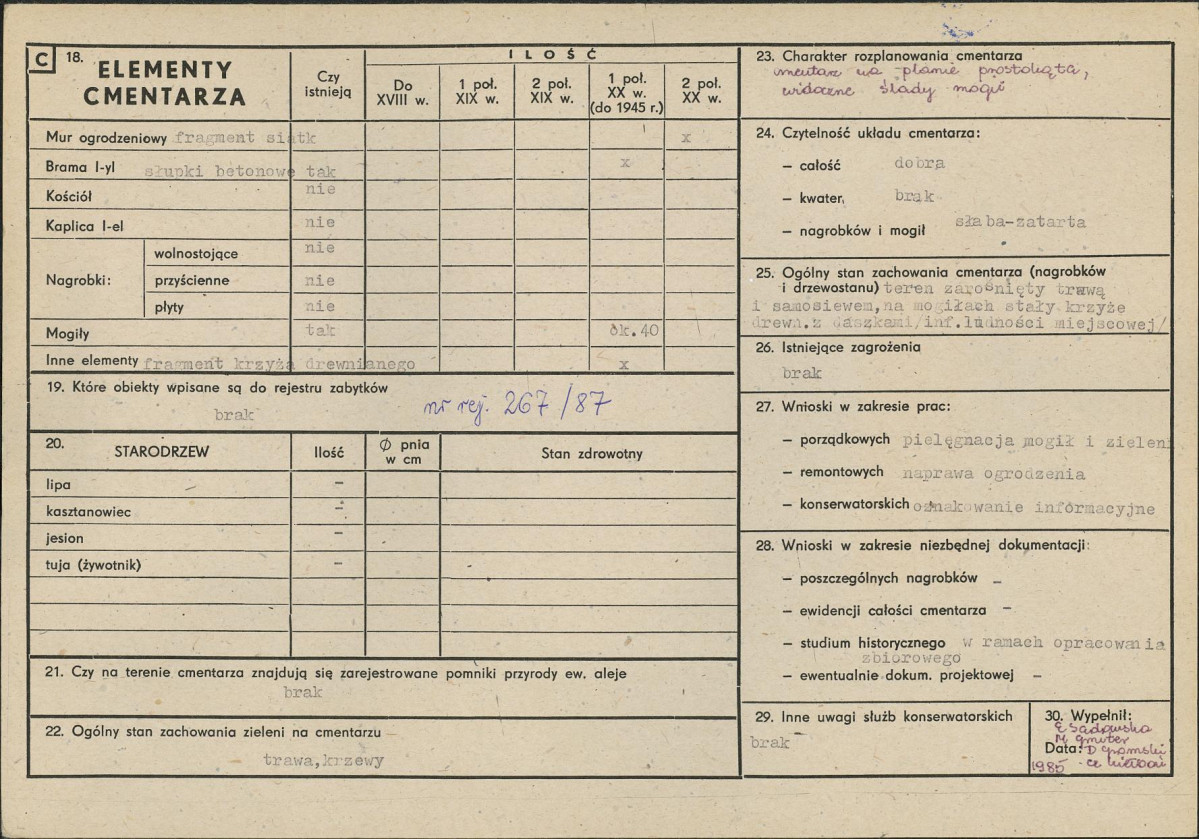 C 18. ELEMENTY CMENTARZA
Czy istnieją
ILOŚĆ
Do XVIII w.
1 poł. XIX w.
2 poł. XIX w.
1 poł. XX w. (do 1945 r.)
2 poł. XX w.
Mur ogrodzeniowy fragment siatk x
Brama I-yl słupki betonowe tak x
Kościół nie
Kaplica I-el nie
Nagrobki:
wolnostojące nie
przyścienne nie
płyty nie
Mogiły tak ok. 40
Inne elementy fragment krzyża drewnianego x
19. Które obiekty wpisane są do rejestru zabytków
brak nr rej. 267/87
20. STARODRZEW Ilość Ø pnia w cm Stan zdrowotny
lipa -
kasztanowiec -
jesion -
tuja (żywotnik) -
21. Czy na terenie cmentarza znajdują się zarejestrowane pomniki przyrody ew. aleje
brak
22. Ogólny stan zachowania zieleni na cmentarzu
trawa,krzewy
23. Charakter rozplanowania cmentarza
cmentarz na planie prostokąta,
widoczne ślady mogił
24. Czytelność układu cmentarza:
– całość dobra
– kwater, brak
– nagrobków i mogił słaba-zatarta
25. Ogólny stan zachowania cmentarza (nagrobków
i drzewostanu) teren zarośnięty trawą
i samosiewem,na mogiłach stały krzyże
drewn.z daszkami/inf.ludności miejscowej/
26. Istniejące zagrożenia
brak
27. Wnioski w zakresie prac:
– porządkowych pielęgnacja mogił i zieleni
– remontowych naprawa ogrodzenia
– konserwatorskich oznakowanie informacyjne
28. Wnioski w zakresie niezbędnej dokumentacji:
– poszczególnych nagrobków -
– ewidencji całości cmentarza -
– studium historycznego w ramach opracowania
zbiorowego
– ewentualnie dokum. projektowej -
29. Inne uwagi służb konserwatorskich
brak
30. Wypełnił:
E Sadowska
M
Data: D Gromski
1985